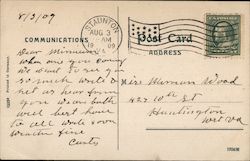 8/3/09
STAUNTON
AUG 3
AM
1909
COMMUNICATIONS
Post Card
ADDRESS
Dear Mirriam
When are you going
we want to see you
so much write &
let us hear from
you soon both
well best love
to all write soon
Curtis
Miss Mirriam Wood
427 10th St
Huntington
West Va